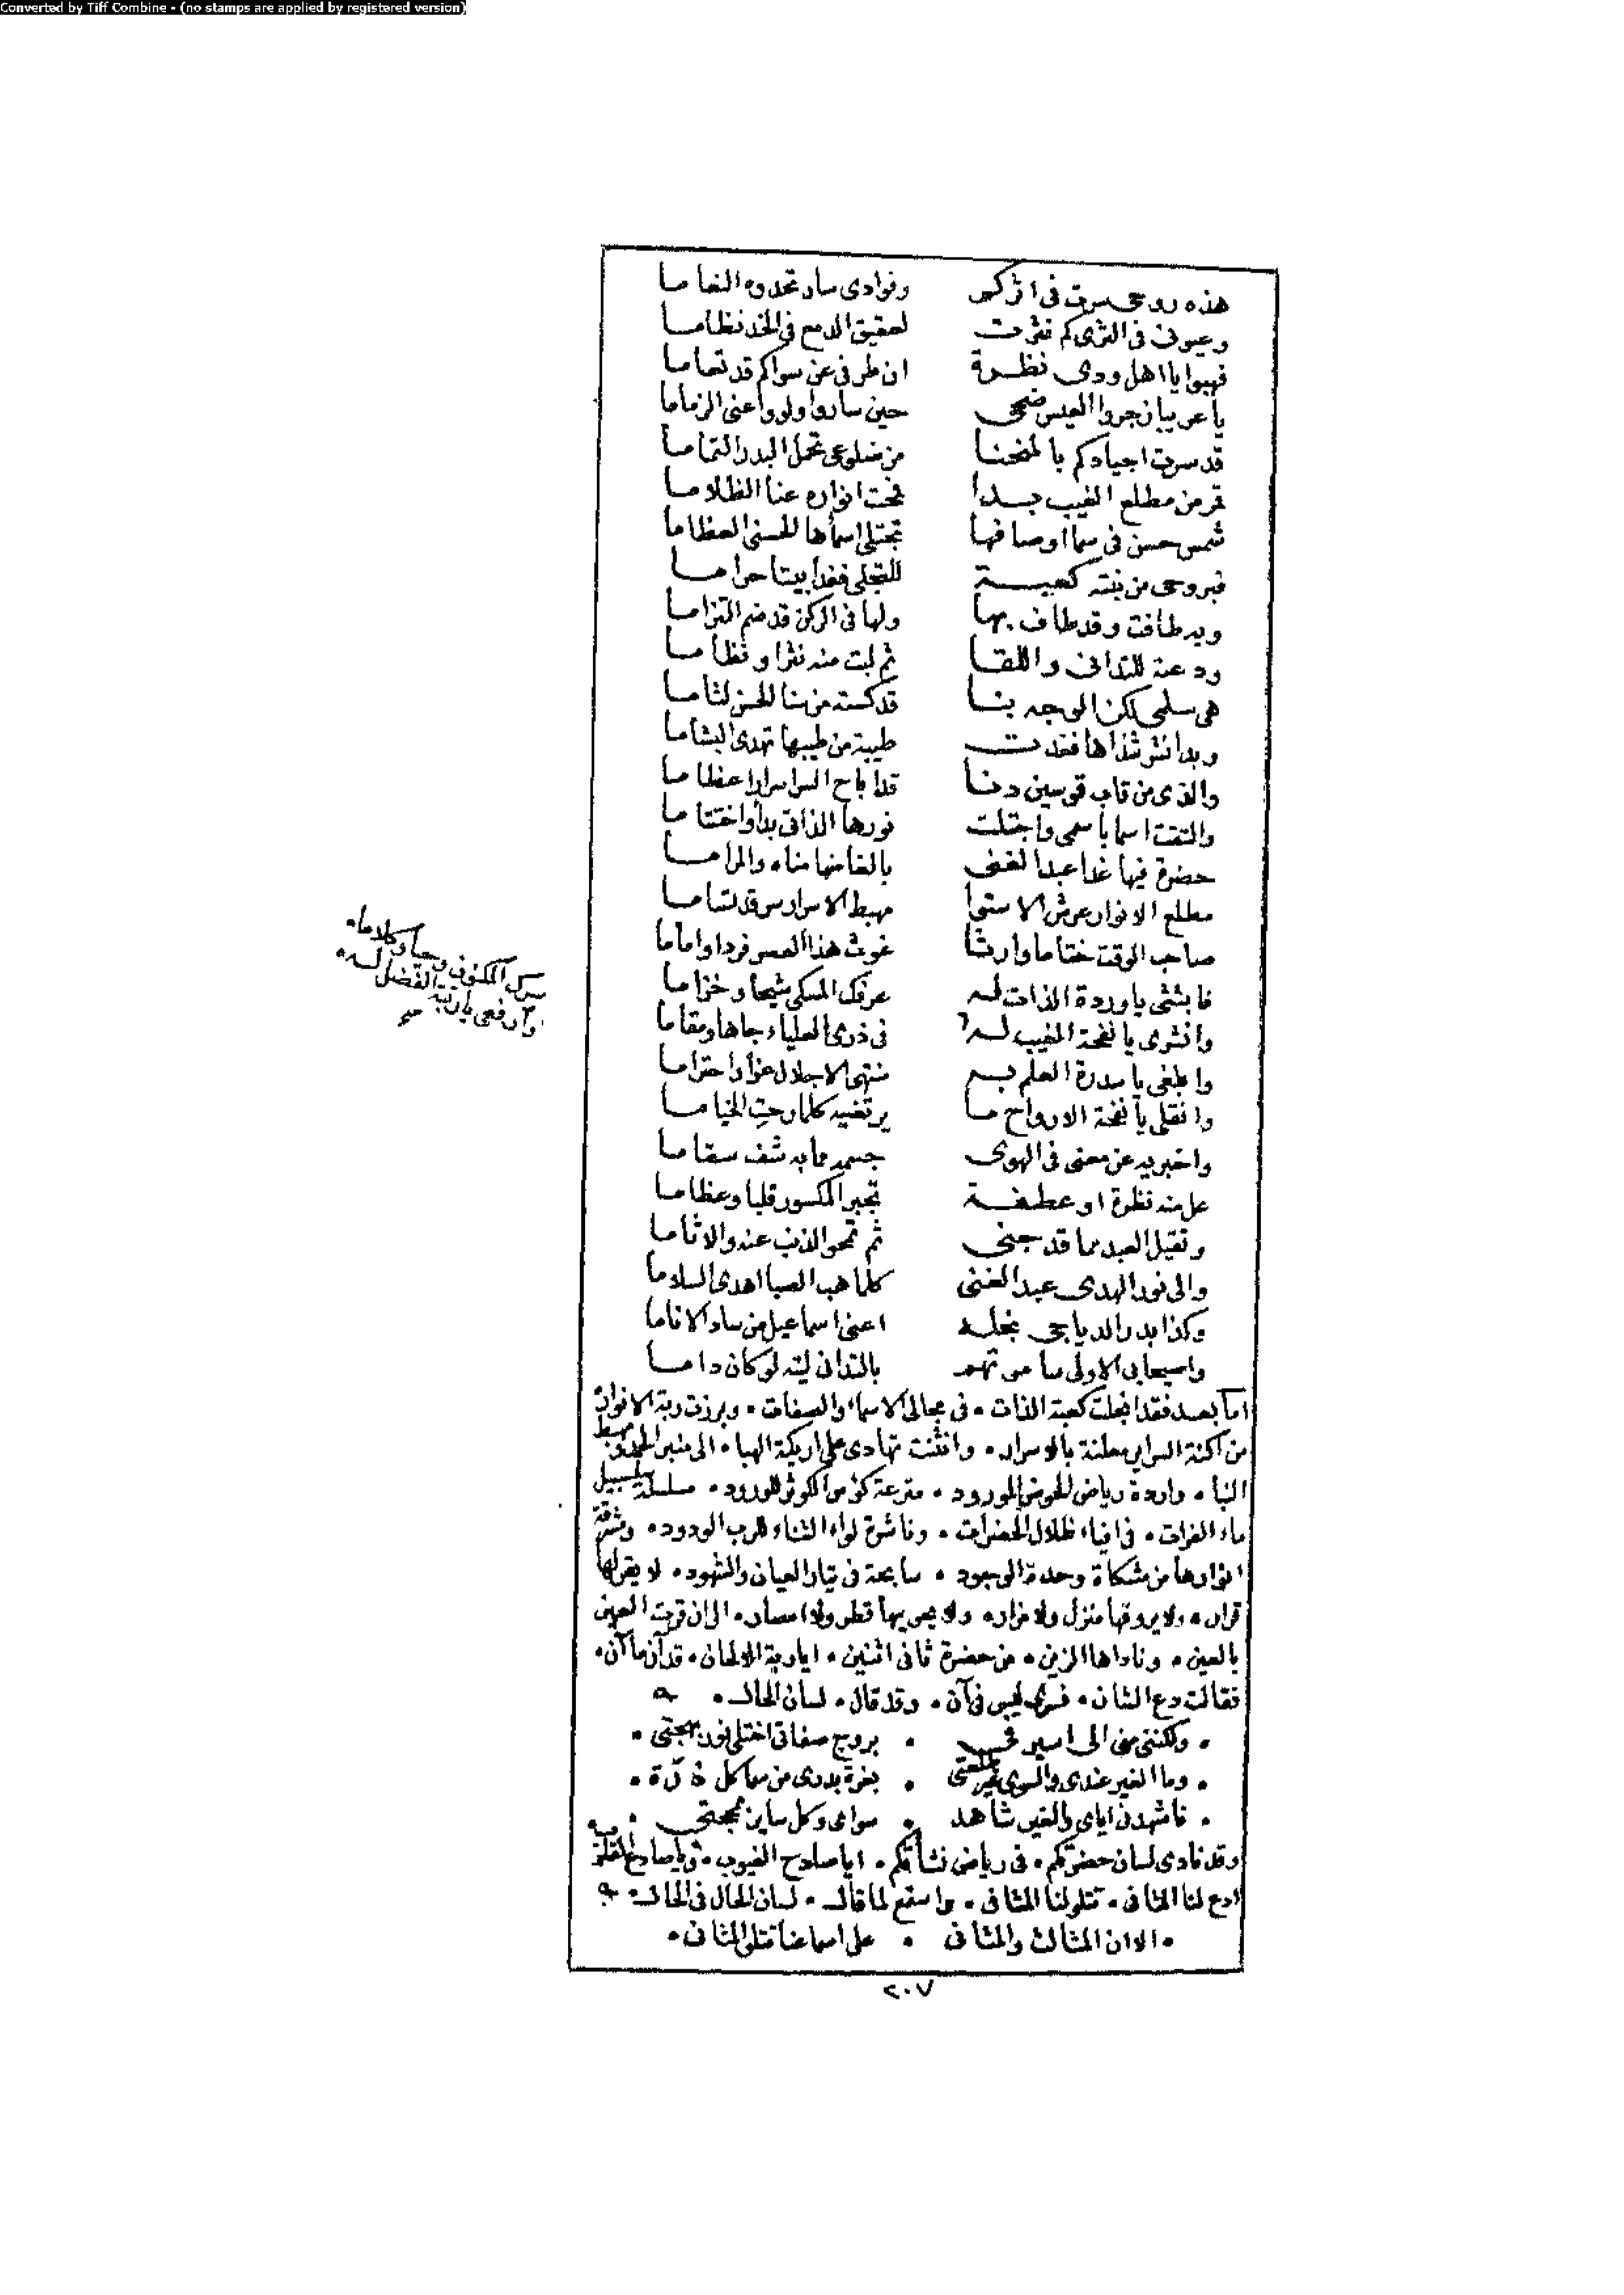 Converted by Tiff Combine - (no stamps are applied by registered version)
هذه روحى سرت فى اثركم وفوادى سار تحدوه النعاما
وعيونى فى الثرى كم نثرت لعقيق الدمع فى الخد نظاما
فهبوا يا اهل ودى نظرة ان طرفى عن سواكم قد تعاما
يا عريبا زجروا العيس ضحى حين ساروا ولووا عنى الزماما
قد سرت اجيادكم بالمنحنا من ضلوعى تحمل البدر التماما
قمر من مطلع الغيب بدا فمحت انواره عنا الظلاما
شمس حسن فى سما اوصافها تجتلى اسماءها الحسنى العظاما
فبروحى من بنته كعبة للتجلى فغدا بيتا حراما
وبه طافت وقد طاف بها ولها فى الركن قد ضم التزاما
ودعته للتدانى واللقا ثم لبت منه نثرا ونظاما
هى سلمى لكن الوجه بنا قد كسته من سنا الحسن لثاما
وبدا نشر شذاها فغدت طيبة من طيبها تهدى البشاما
والذى من قاب قوسين دنا قد اباح السر اسرارا عظاما
والتقت اسما باسمى واجتلت نورها الذاتى بدأ واختتاما
حضرة فيها غدا عبد الغنى بالغا منها مناه والمراما
مطلع الانوار عرش الاستوا مهبط الاسرار سر قد تساما
صاحب الوقت ختاما وارثا غوث هذا العصر فردا واماما
فابثثى يا وردة الذات له عرفك المسكى شيحا وخزاما
وانشرى يا نفحة الغيب له سرك المكنون وحيا وكلاما
وارفعى يا رتبة الفضل له فى ذرى العلياء جاها ومقاما
صح
وابلغى يا سدرة العلم به منتهى الاجلال عزا واحتراما
وانقلى يا نفخة الارواح ما يرتضيه كلما رحت الخياما
واخبريه عن معنى فى الهوى جسمه مما به شف سقاما
عل منه نظرة او عطفة تجبر المكسور قلبا وعظاما
وتقيل العبد مما قد جنى ثم تمحو الذنب عنه والاثاما
والى نور الهدى عبد الغنى كلما هب الصبا اهدى السلاما
وكذا بدر الدياجى نجله اعنى اسماعيل من ساد الاناما
واصيحابى الاولى سامرتهم بالتدان ليته لو كان داما
اما بعد فقد انجلت كعبة الذات • فى مجالى الاسماء والصفات • وبرزت ربة الانوار
من اكنة السراير معلنة بالاسرار • وانثنت تهادى على اريكة البهاء • الى منبر الحمد ومهبط
النبا • واردة رياض الحوض المورود • مترعة كؤس الكوثر للورود • مسلسلة سلسبيل
ماء الفرات • فى افياء ظلال الحضرات • وناشرة لواء الثناء للرب الودود • ومشرقة
انوارها من مشكاة وحدة الوجود • سابحة فى تيار العيان والشهود • لا يقر لها
قرار • ولا يروقها منزل ولا مزار • ولا يحويها قطر ولا امصار • الى ان قرت العين
بالعين • وناداها الزين • من حضرة ثانى اثنين • ايا ربة الالحان • قد آن ما آن •
فقالت دع الشان • فسرى ليس فى آن • وقد قال • لسان الحال •
• ولكننى منى الى اسير فى • بروج صفاتى اختلى نور بهجتى •
• وما الغير عندى والسوى غير طلعتى • بغرة بدرى من سما كل ذرة •
• فاشهدنى اياى والغير شاهد • سواى وكل ساير لمحجتى •
وقد نادى لسان حضرتكم • فى رياض نشأتكم • ايا صادح الغيوب • ويا صادع القلوب
ادع لنا المثانى • تتلو لنا المثانى • واسمع لما قال • لسان الحال فى الحال •
• الا ان المثالث والمثانى • على اسماعنا تتلو المثانى •
٢٠٧